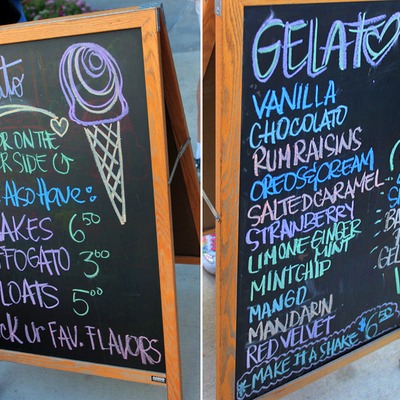 ato
OR ON THE
R SIDE
Also Have:
AKES 6.50
FFOGATO 3.00
LOATS 5.00
CK UR FAV. FLAVORS
GELATO
VANILLA
CHOCOLATO
RUM RAISINS
OREOS & CREAM
SALTED CARAMEL
STRANBERRY
LIMONE GINGER
MINT
MINT CHIP
MANGO
MANDARIN
RED VELVET
* MAKE IT A SHAKE $6.50